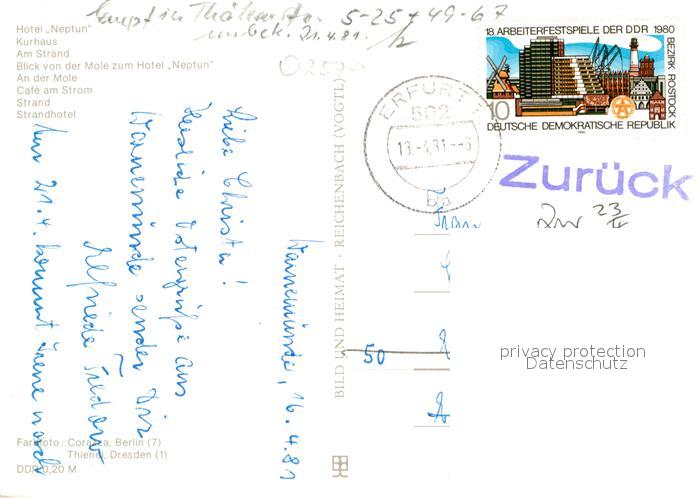 Empf in Thälmannstr. 5-25 + 49-67
unbek. 21.4.81.
Hotel „Neptun"
Kurhaus
Am Strand
Blick von der Mole zum Hotel „Neptun"
An der Mole
Café am Strom
Strand
Strandhotel
18. ARBEITERFESTSPIELE DER DDR 1980
BEZIRK ROSTOCK
10
DEUTSCHE DEMOKRATISCHE REPUBLIK
ERFURT
502
18.-4.81.--6
ba
Zurück
23/4
Warnemünde, 16.4.81
Liebe Christa!
Herzliche Ostergrüße aus
Warnemünde sendet Dir
Elfriede
Am 21.4. kommt Irene nach
50
BILD UND HEIMAT · REICHENBACH (VOGTL)
Farbfoto: Corazza, Berlin (7)
Thienel, Dresden (1)
DDR 0,20 M
privacy protection
Datenschutz